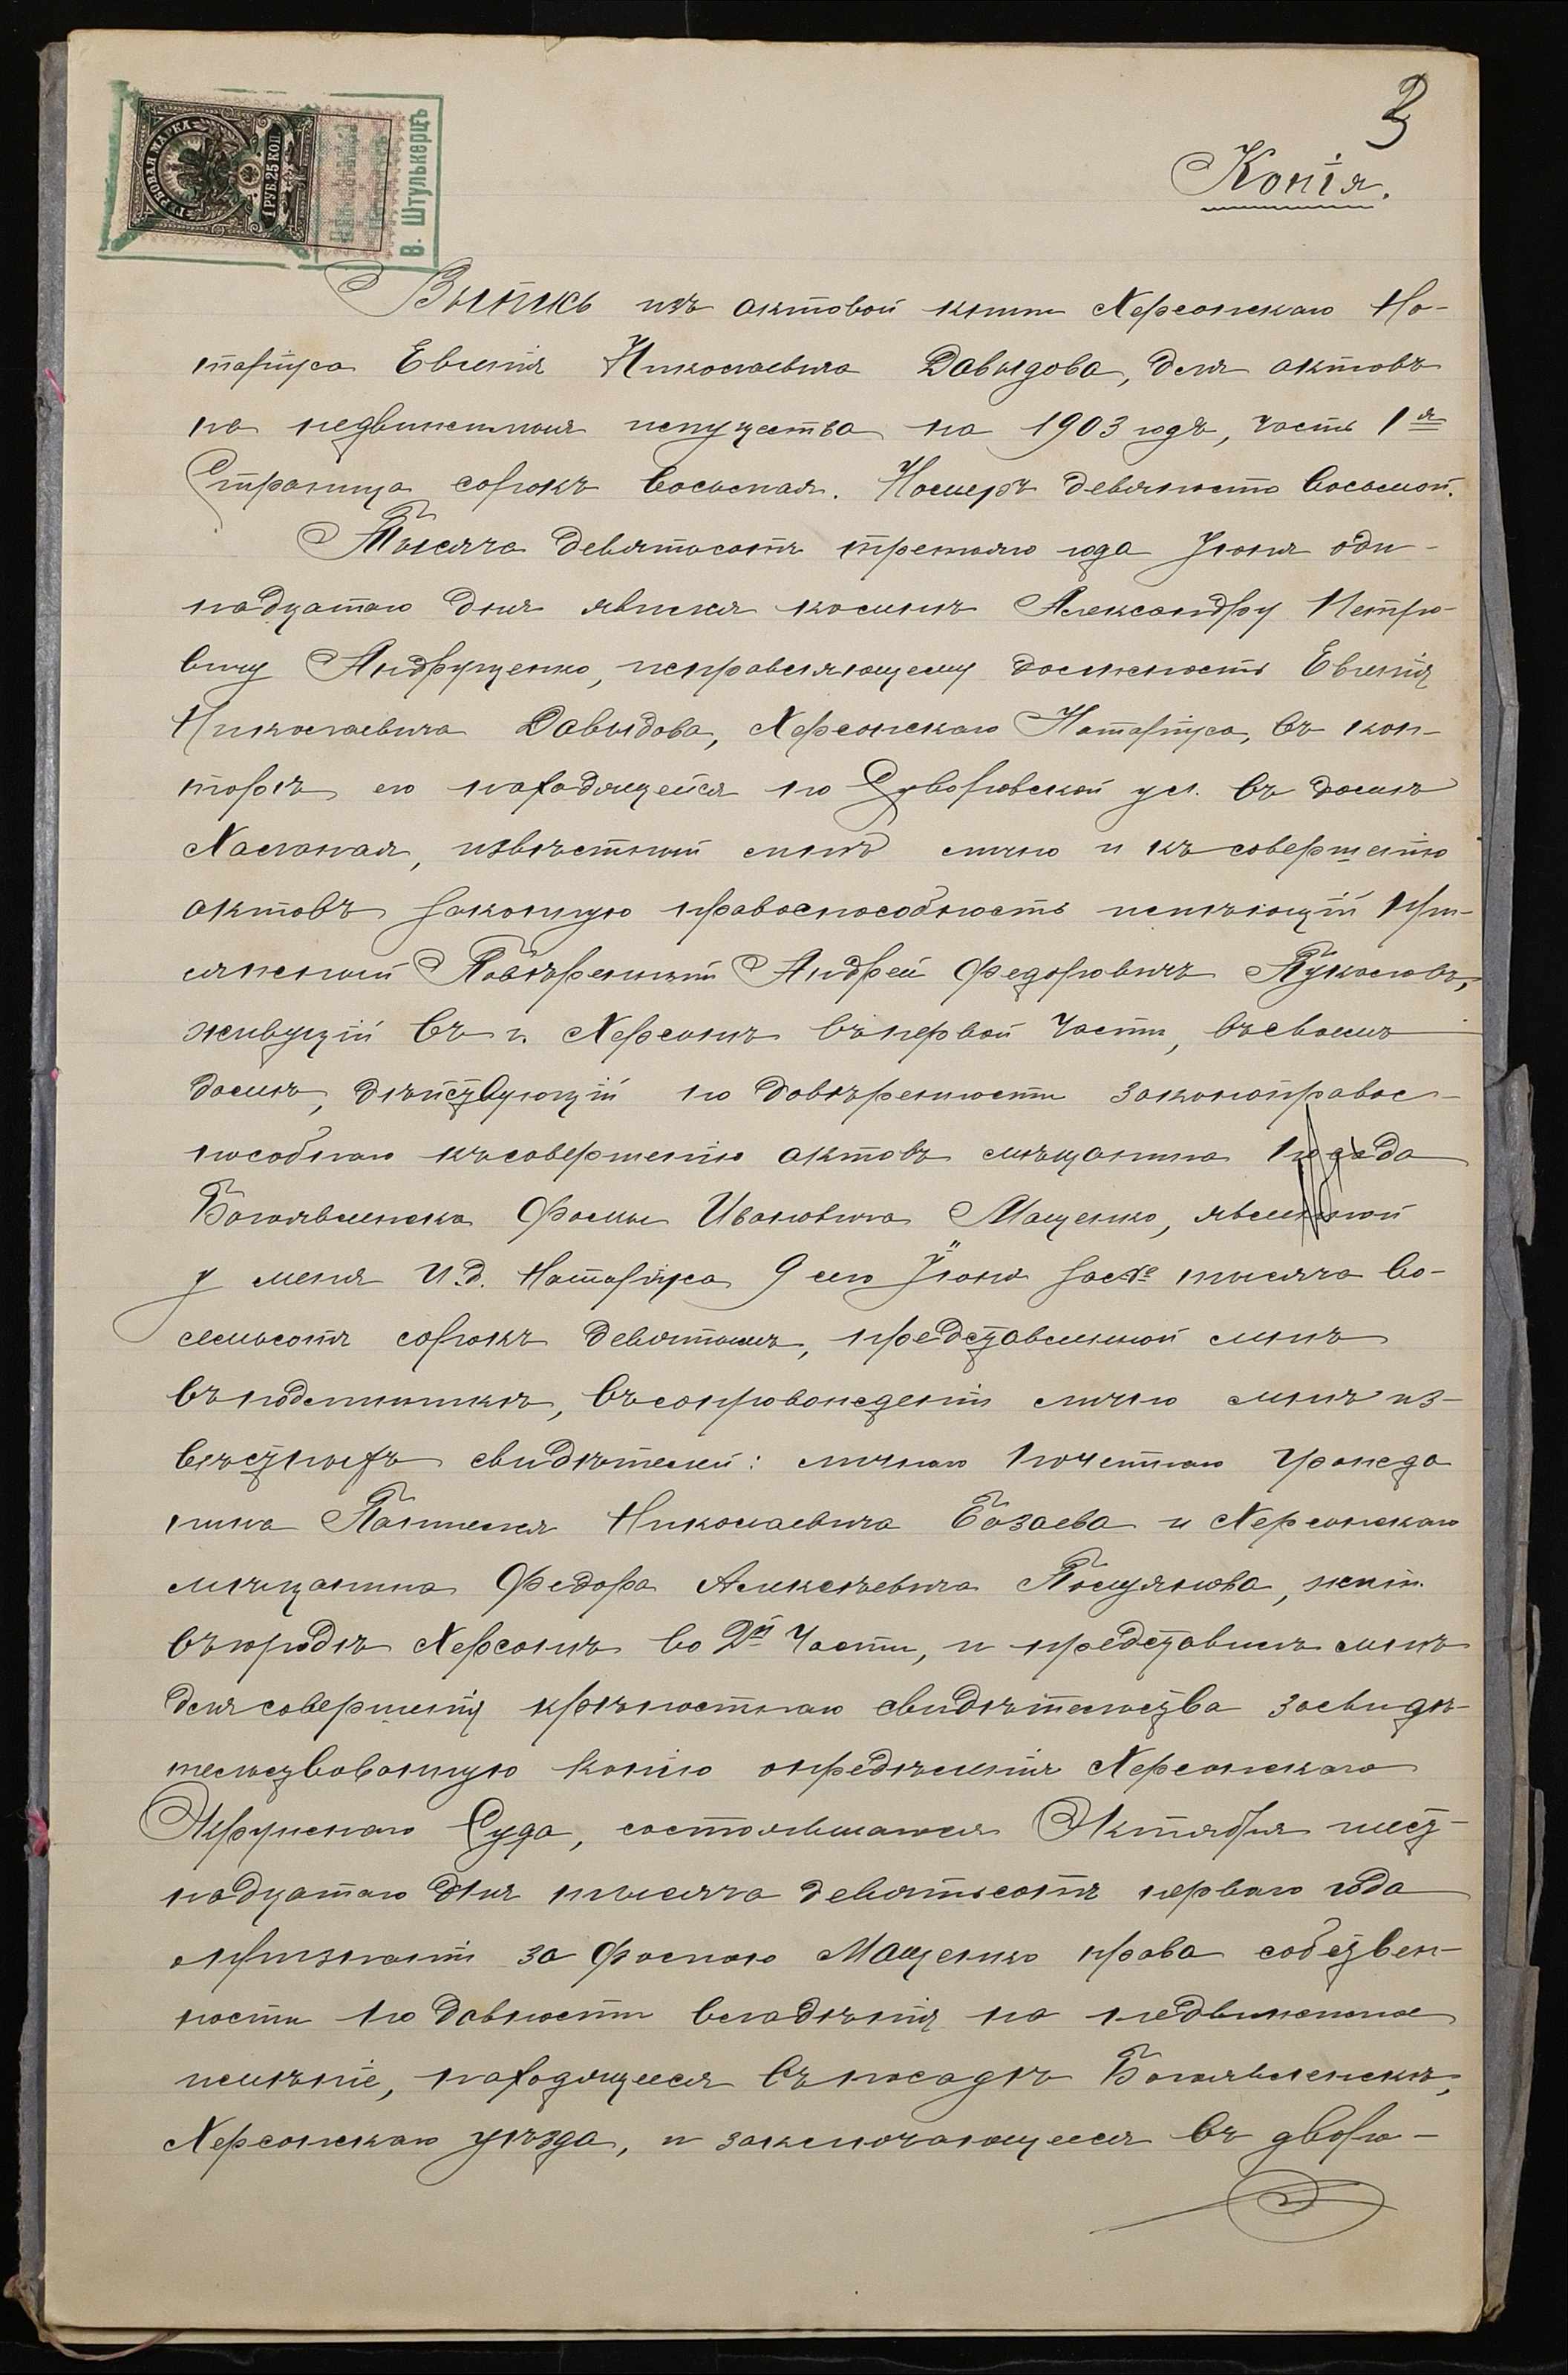 3
Копія.
ГЕРБОВАЯ МАРКА
1 РУБ. 25 КОП.
В. Штулькерцъ
Выпись изъ актовой книги Херсонскаго Но-
таріуса Евгенія Николаевича Давыдова, для актовъ
на недвижимыя имущества на 1903 годъ, часть 1я
Страница сорокъ восьмая. Номеръ девяносто восьмой.
Тысяча девятьсотъ третьяго года Іюня оди-
надцатаго дня явился ко мнѣ Александру Петро-
вичу Андрущенко, исправляющему должность Евгенія
Николаевича Давыдова, Херсонскаго Нотаріуса, въ кон-
торѣ его находящейся по Суворовской ул. въ домѣ
извѣстный мнѣ лично и къ совершенію
актовъ законную правоспособность имѣющій При-
сяжный Повѣренный Андрей Федоровичъ
живущій въ г. Херсонѣ въ первой части, въ своемъ
домѣ, дѣйствующій по довѣренности законоправос-
пособнаго къ совершенію актовъ мѣщанина посада
Богоявленска Фомы Ивановича Мащенко, явленной
у меня И.д. Нотаріуса 9 сего Іюня за № тысяча во-
семьсотъ сорокъ девятымъ, представленной мнѣ
въ подлинникѣ, въ сопровожденіи лично мнѣ из-
вѣстныхъ свидѣтелей: личнаго почетнаго гражда
нина Николаевича и Херсонскаго
мѣщанина Федора Алексѣевича жит.
въ городѣ Херсонѣ во 2й части, и представилъ мнѣ
для совершенія крѣпостнаго свидѣтельства засвидѣ-
тельствованную копію опредѣленія Херсонскаго
Окружнаго Суда, состоявшагося Октября шест-
надцатаго дня тысяча девятьсотъ перваго года
о признаніи за Фомою Мащенко права собствен-
ности по давности владѣнія на недвижимое
имѣніе, находящееся въ посадѣ Богоявленскѣ,
Херсонскаго уѣзда, и заключающееся въ дворо-